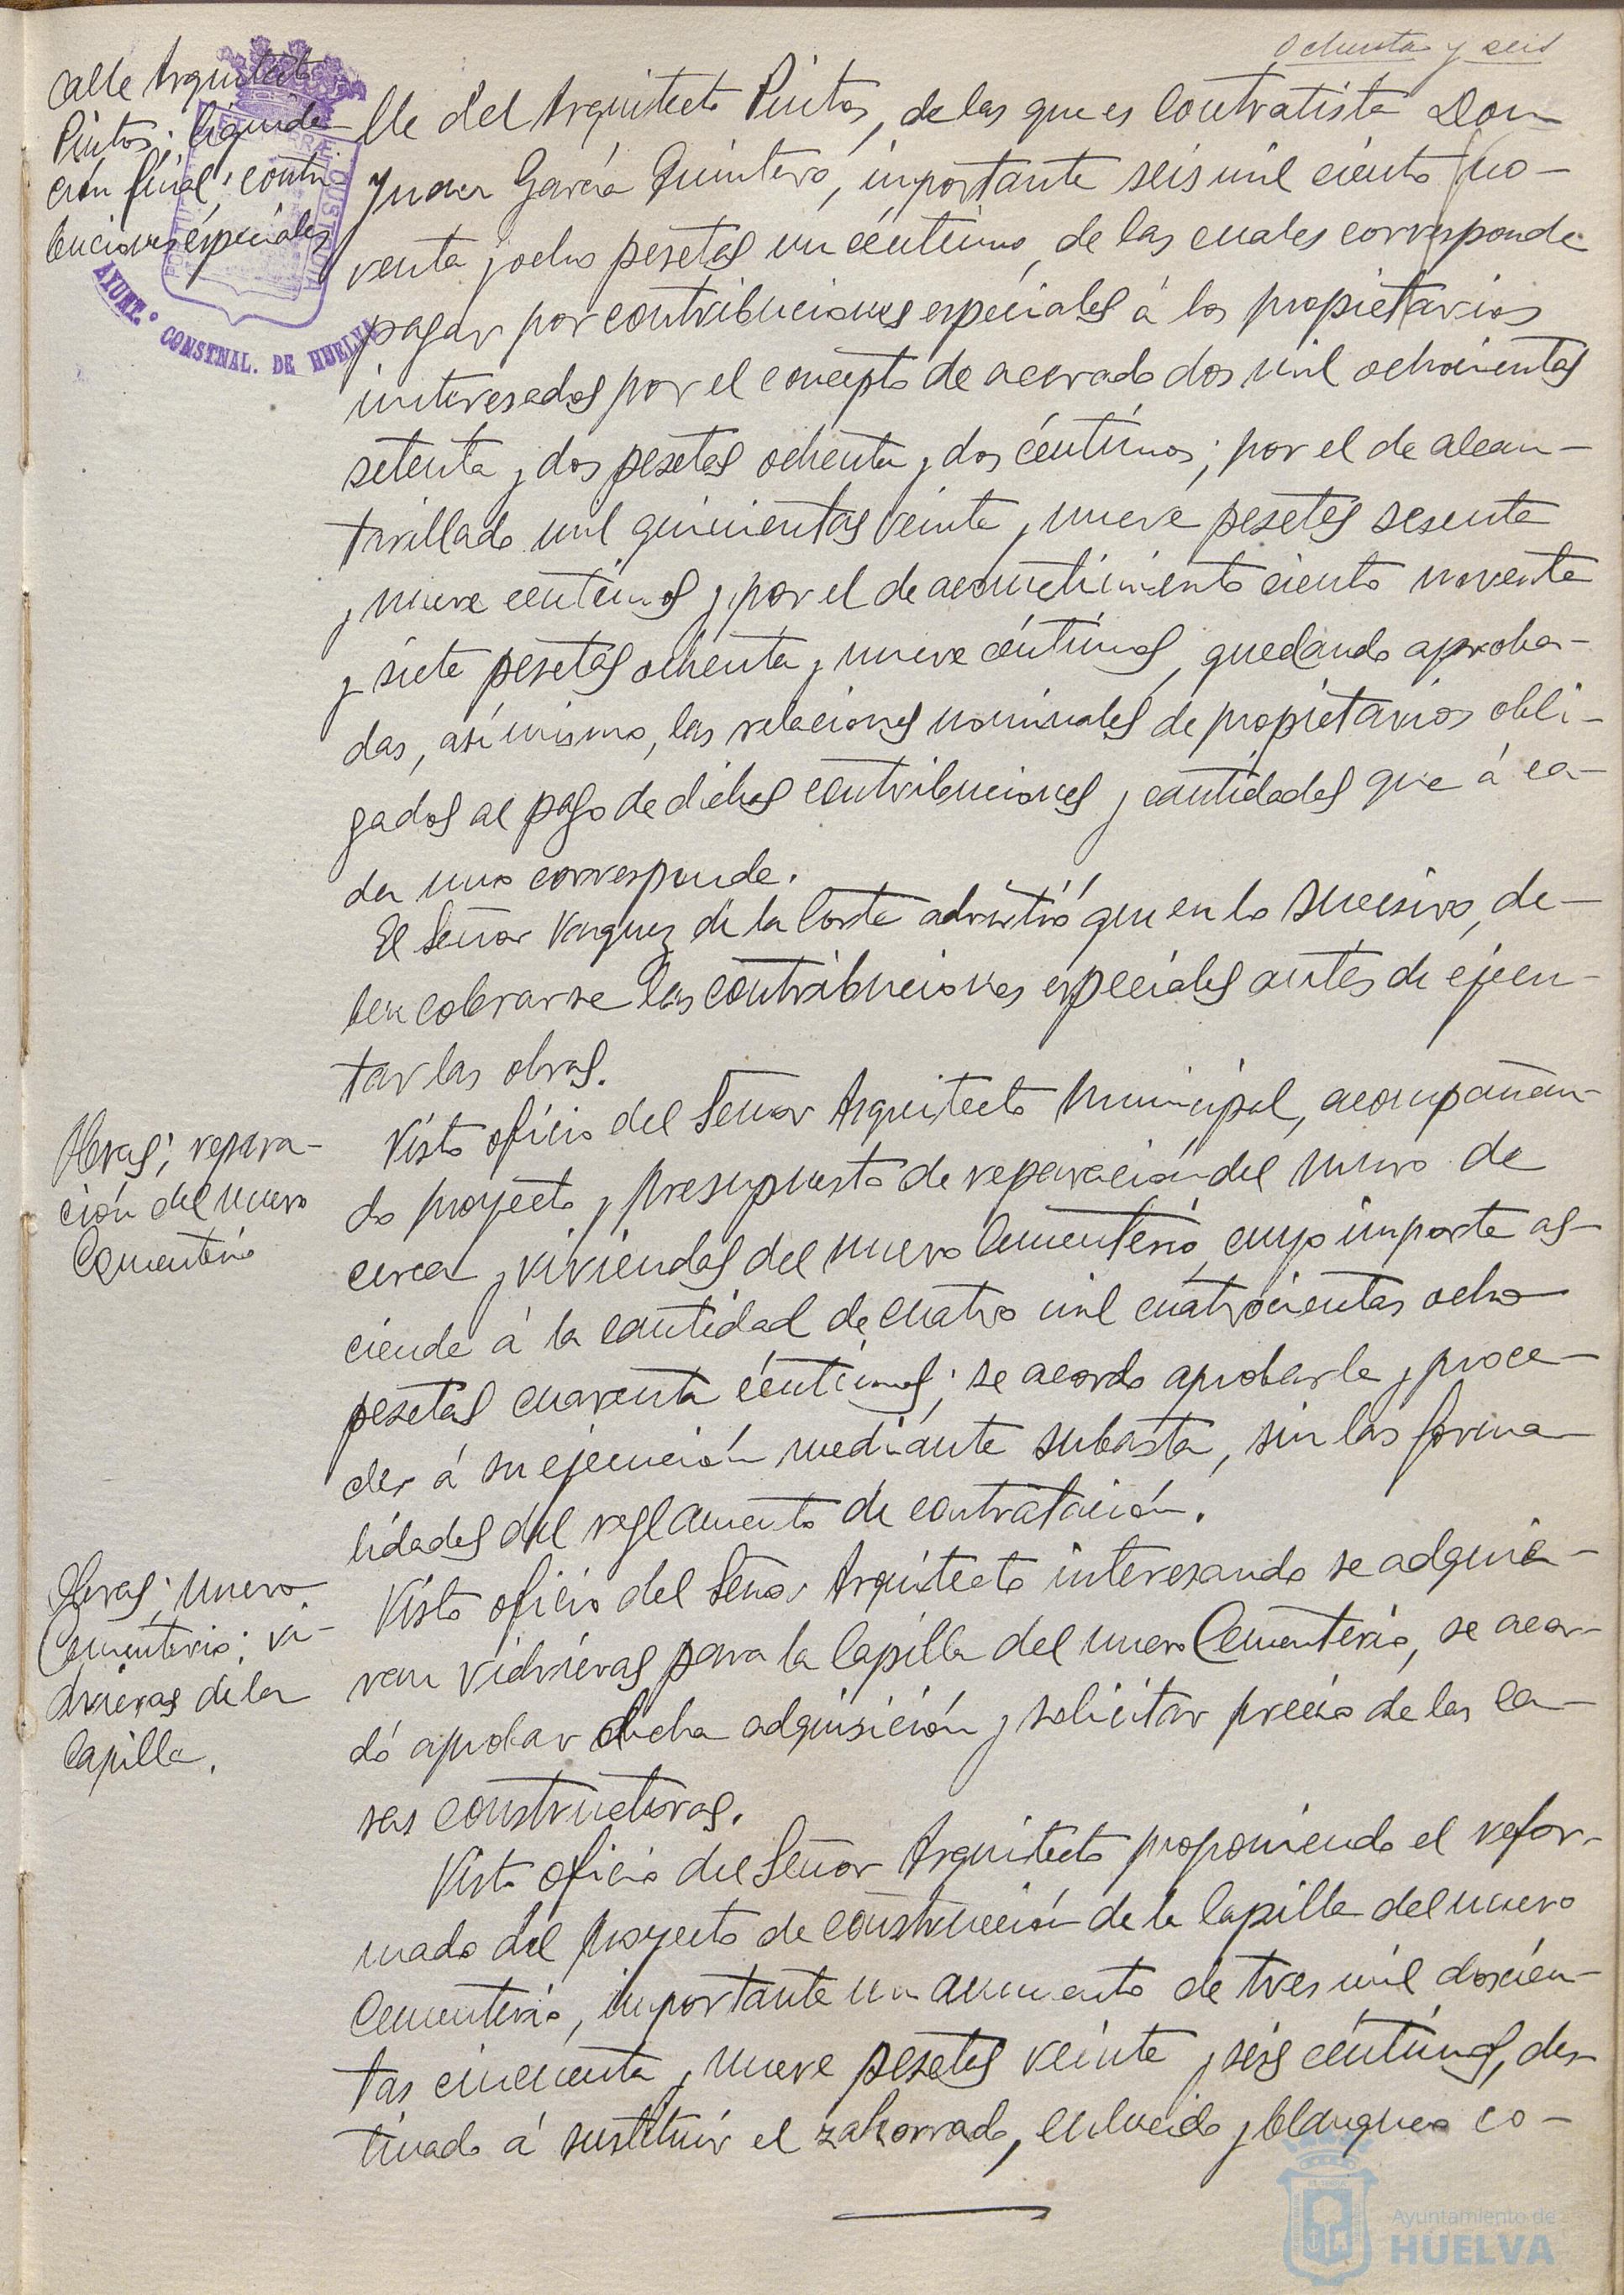 Ochenta y seis
Calle Arquitecto
Pintos; liquida-
ción final; contri
buciones especiales
AYUNT.º CONSTNAL. DE HUELVA
lle del Arquitecto Pintos, de las que es Contratista Don
Juan García Quintero, importante seis mil ciento no-
venta y ocho pesetas un céntimo, de las cuales corresponde
pagar por contribuciones especiales á los propietarios
interesados por el concepto de acerado dos mil ochocientas
setenta y dos pesetas ochenta y dos céntimos; por el de alcan-
tarillado mil quinientas veinte y nueve pesetas sesenta
y nueve centimos y por el de acometimiento ciento noventa
y siete pesetas ochenta y nueve céntimos, quedando aproba-
das, asimismo, las relaciones nominales de propietarios obli-
gados al pago de dichas contribuciones y cantidades que á ca-
da uno corresponde.
El Señor Vazquez de la Corte advirtió que en lo sucesivo, de-
ben cobrarse las contribuciones especiales antes de ejecu-
tar las obras.
Obras; repara-
ción del nuevo
Cementerio
Visto oficio del Señor Arquitecto Municipal, acompañan-
do proyecto y presupuesto de reparación del muro de
cerca y viviendas del nuevo Cementerio, cuyo importe as-
ciende á la cantidad de cuatro mil cuatrocientas ocho
pesetas cuarenta céntimos; se acordo aprobarle y proce-
der á su ejecución mediante subasta, sin las forma
lidades del reglamento de contratación.
Obras; nuevo
Cementerio; vi-
drieras de la
Capilla.
Visto oficio del Señor Arquitecto interesando se adquie-
ran vidrieras para la Capilla del nuevo Cementerio, se acor-
dó aprobar dicha adquisición y solicitar precio de las ca-
sas constructoras.
Visto oficio del Señor Arquitecto proponiendo el refor-
mado del proyecto de construcción de la Capilla del nuevo
Cementerio, importante un aumento de tres mil doscien-
tas cincuenta y nueve pesetas veinte y seis céntimos, des
tinado á sustituir el zahorrado, enlucido y blanqueo co-
Ayuntamiento de
HUELVA